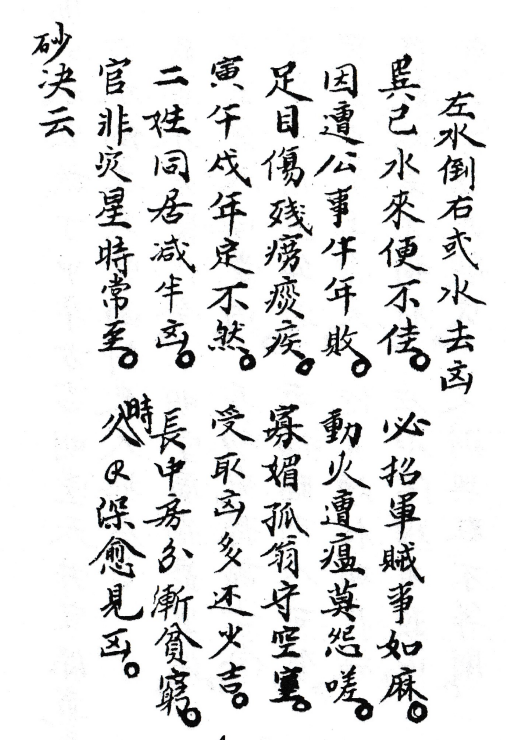 左水倒右或水去凶
巽巳水來便不佳。必招軍賊事如麻。
因遭公事牛年敗。動火遭瘟莫怨嗟。
足目傷殘癆痰疾。寡媚孤翁守空室。
寅午戌年定不然。受取凶多还少吉。
二姓同居减半凶。長中房分漸貧窮。
官非災星時常至。久時日深愈見凶。
砂决云